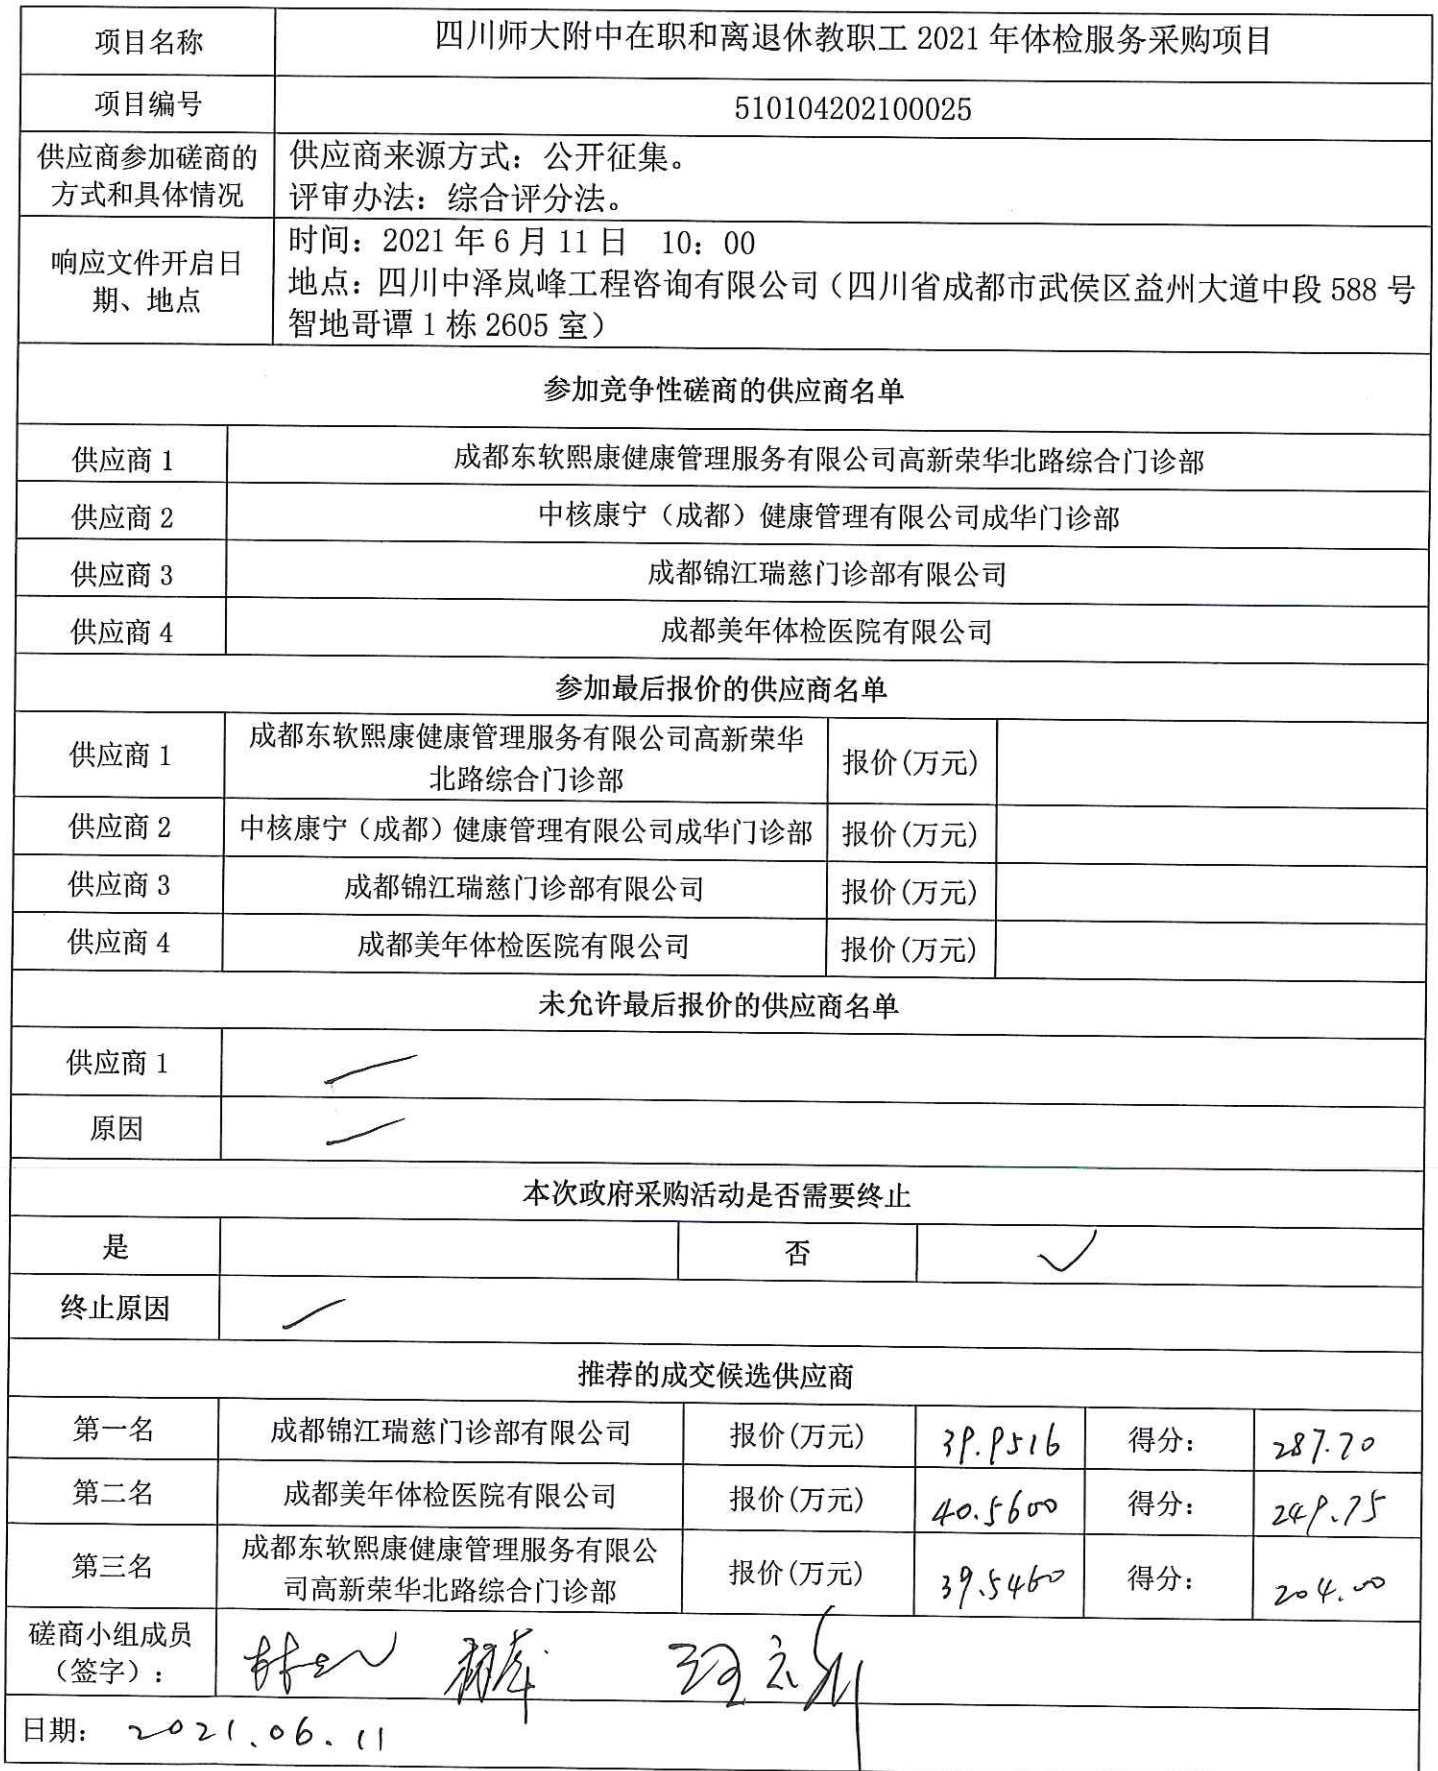 项目名称
四川师大附中在职和离退休教职工 2021 年体检服务采购项目
项目编号
510104202100025
供应商参加磋商的
方式和具体情况
供应商来源方式：公开征集。
评审办法：综合评分法。
响应文件开启日
期、地点
时间：2021 年 6 月 11 日 10：00
地点：四川中泽岚峰工程咨询有限公司（四川省成都市武侯区益州大道中段 588 号
智地哥谭 1 栋 2605 室）
参加竞争性磋商的供应商名单
供应商 1
成都东软熙康健康管理服务有限公司高新荣华北路综合门诊部
供应商 2
中核康宁（成都）健康管理有限公司成华门诊部
供应商 3
成都锦江瑞慈门诊部有限公司
供应商 4
成都美年体检医院有限公司
参加最后报价的供应商名单
供应商 1
成都东软熙康健康管理服务有限公司高新荣华
北路综合门诊部
报价(万元)
供应商 2
中核康宁（成都）健康管理有限公司成华门诊部
报价(万元)
供应商 3
成都锦江瑞慈门诊部有限公司
报价(万元)
供应商 4
成都美年体检医院有限公司
报价(万元)
未允许最后报价的供应商名单
供应商 1
原因
本次政府采购活动是否需要终止
是
否
✓
终止原因
推荐的成交候选供应商
第一名
成都锦江瑞慈门诊部有限公司
报价(万元)
39.9516
得分：
287.70
第二名
成都美年体检医院有限公司
报价(万元)
40.5600
得分：
249.75
第三名
成都东软熙康健康管理服务有限公
司高新荣华北路综合门诊部
报价(万元)
39.5460
得分：
204.00
磋商小组成员
（签字）：
日期：2021.06.11